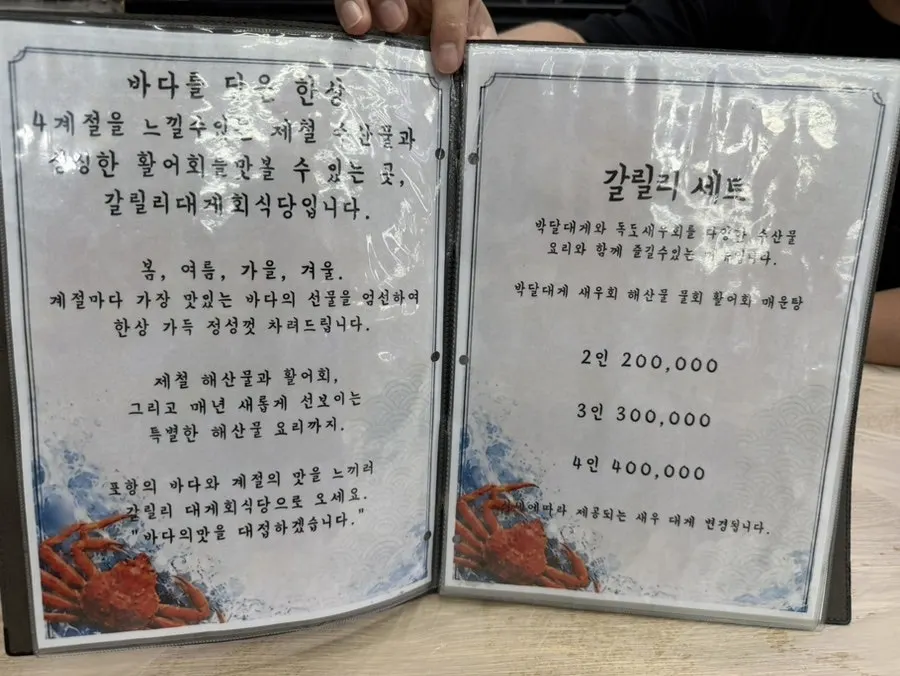 바다를 담은 한상
4계절을 느낄수있는 제철 수산물과
싱싱한 활어회를맛볼 수 있는 곳,
갈릴리대게회식당입니다.
봄, 여름, 가을, 겨울.
계절마다 가장 맛있는 바다의 선물을 엄선하여
한상 가득 정성껏 차려드립니다.
제철 해산물과 활어회,
그리고 매년 새롭게 선보이는
특별한 해산물 요리까지.
포항의 바다와 계절의 맛을 느끼러
갈릴리 대게회식당으로 오세요.
"바다의맛을 대접하겠습니다."
갈릴리 세트
박달대게와 독도새우회를 다양한 수산물
요리와 함께 즐길수있는
박달대게 새우회 해산물 물회 활어회 매운탕
2인 200,000
3인 300,000
4인 400,000
제공되는 새우 대게 변경됩니다.